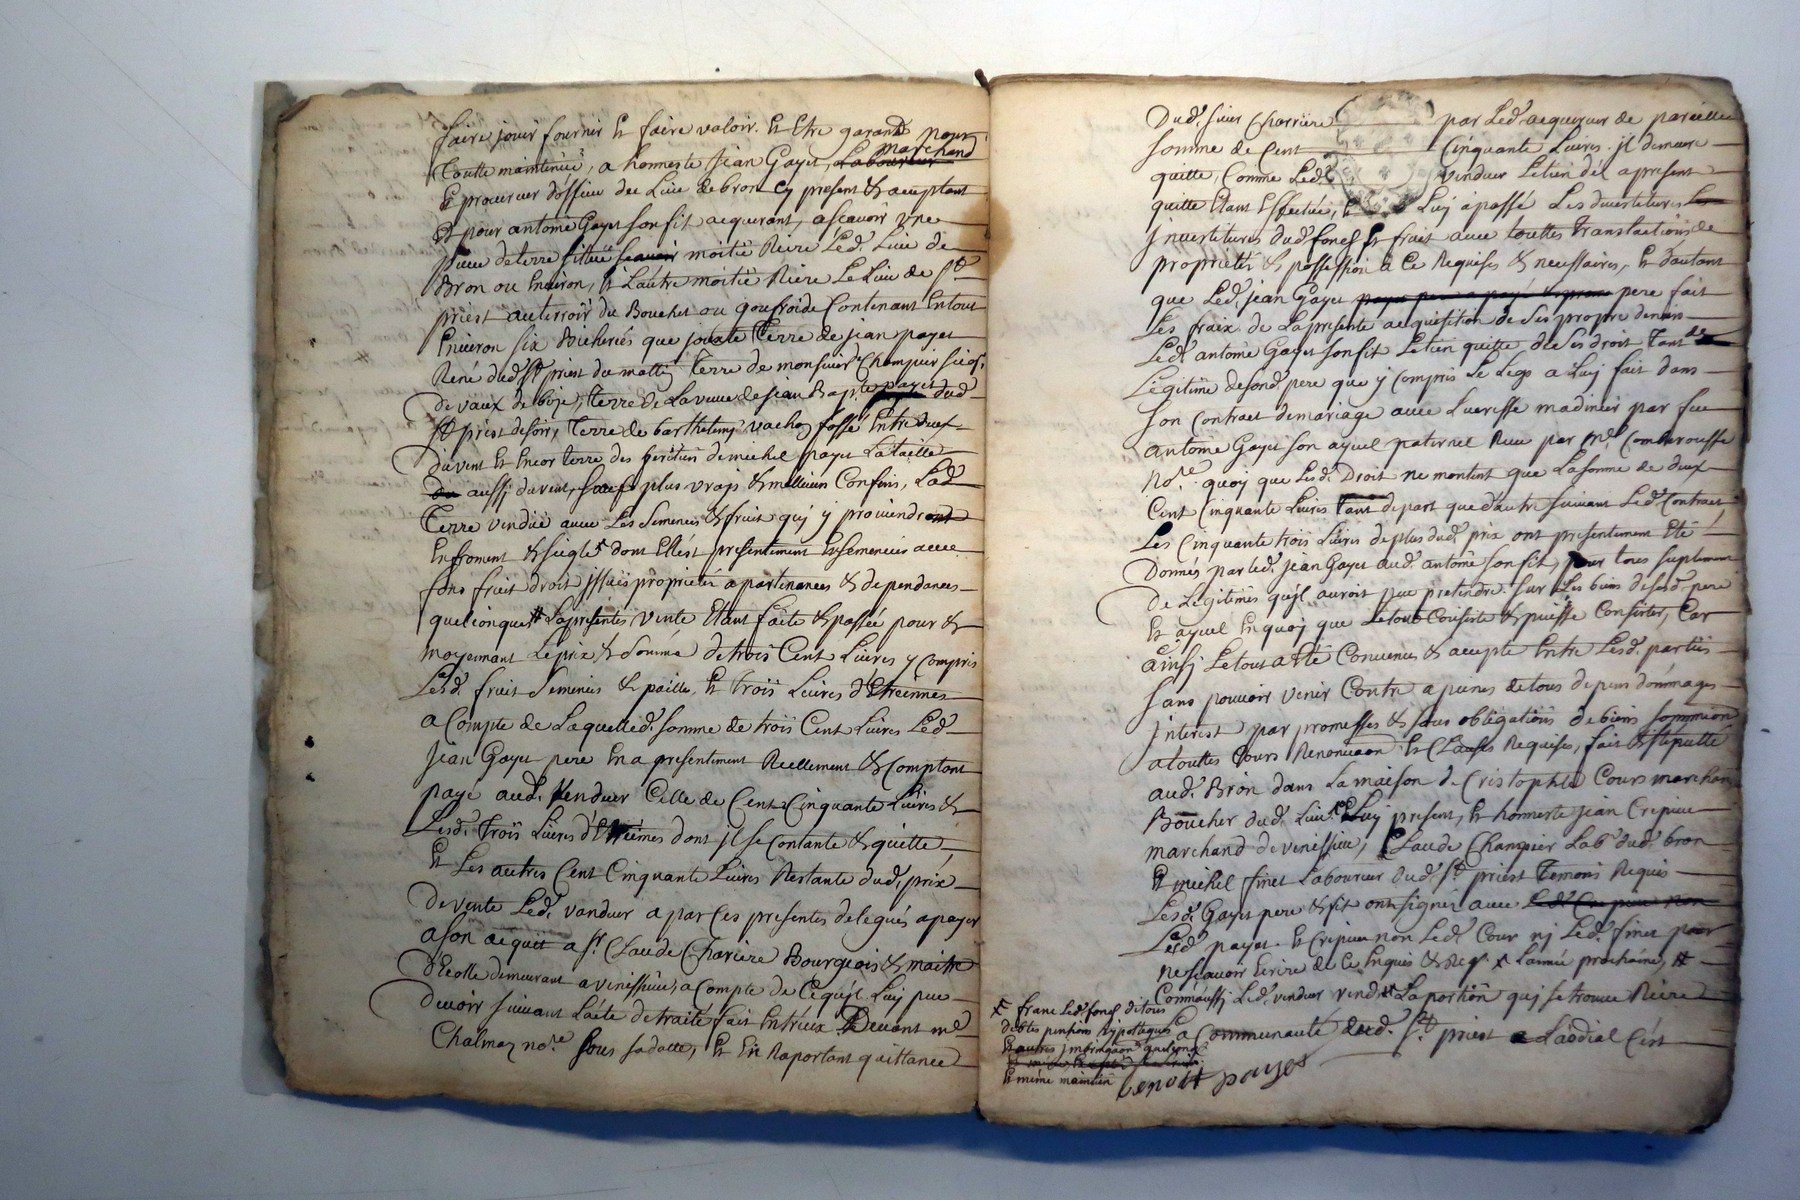 faire jouir fournir et faire valoir et etre garand pour
toutte maintenüe, a honneste Jean Gayet, Laboureur marchand
et procureur d'office du Lieu de bron cy present & acceptant
et pour antoine Gayet son fit acquerant, ascavoir une
piece de terre située scavoir moitié Riere Led. Lieu de
Bron ou Environ, et L'autre moitié Riere Le Lieu de St
priest au terroir du Bouchet ou goufroide Contenant En tout
Environ six Bicherées que jouxte Terre de jean payet
René dud. St priest du mattin Terre de monsieur Champuir
de vaux de bize, terre de La veuve de Jean Bap.te payet dud.
St priest de soir, Terre de barthelemy vachon fossé Entre deux
du vent et Encor terre des heritiers de michel payet La taille
du aussi du vent, sauf plus vrays & meilleurs Confins, Lad.
Terre vendüe avec Les Semences & fruit quj y proviendront
En froment & siegle dont Ell'est presentement Ensemencée avec
fons fruit droit jssües proprieté apartenances & dependances
quelconque # La presentes vente Etant faite & passée pour &
moyennant Le prix & Somme de trois Cent Livres y compris
Lesd. fruit Semences & paille, et trois Livres d'Etreinnes
a Compte de Laquelled. somme de trois Cent Livres Led.
Jean Gayet pere En a presentement Reellement & Comptant
payé aud. Vendeur Celle de Cent Cinquante Livres &
Lesd. Trois Livres d'Etreinnes dont jl se Contante & quitte
Et Les autres Cent Cinquante Livres Restante dud. prix
De vente Led. vandeur a par Ces presentes delegués a payer
a son acquit a Sr. Claude Chariere Bourgeois & maitre
d'Ecolle demeurant a venissieu, a compte de Ce qu'jl Luy peu
devoir suivant L'acte de traité fait Entr'eux Devant me
Chalmaz no.re sous sa datte, et En Raportant quittance
Dud. sieur Charriere par Led. acquereur de pareille
somme de Cent Cinquante Livres jl demeure
quitte, Comme Led. vendeur Le tien dés a present
quitte Etant Effectuée, Et Luy a passé Les devestitures
jnvestitures dud. fond et fruit avec touttes translations de
proprieté & possession a Ce Requises & necessaires, et d'autant
que Led. jean Gayet pere fait
Les fraix de La presente acquisition de Ses propre deniers
Led. antoine Gayet son fit Le tien quitte de Ses droit Tant de
Legitime de sond. pere que y Compris Le Legs a Luj fait dans
son Contract de mariage avec Lucresse madinier par feu
antoine Gayet son ayeul paternel Receu par me. Comberousse
No.re quoy que Lesd. Droit ne montent que La somme de deux
Cent Cinquante Livres tant de part que d'autre suivant Led. Contract
Les Cinquante trois Livres de plus dud. prix ont presentement Eté
Donnés par led. jean Gayet aud. antoine son fit, pour tous suplement
De Legitimes qu'jl auroit peu pretendre sur Les biens de sesd. pere
Et ayeul En quoy que Le tout Consiste & puisse Consister, Car
ainsj Le tout a eté Convenus & accepté Entre Lesd. parties
sans pouvoir venir Contre a peines de tous depens dommages
jnterest par promesses & sous obligations de biens sommission
a touttes Cours Renonciaon et Clauses Requises, fait & stipullé
aud. Bron dans La maison de Cristophle Cours marchand
Boucher dud. Lieu Luj present, et honneste jean Crepieu
marchand de venissieu, Claude Champier Lab. dud. bron
Et michel finet Laboureur dud. St priest Temoins Requis
Lesd. Gayet pere & fit ont signéz avec
Lesd. payet et Crepieu non Led. Cour nj Led. finet pour
ne scavoir Ecrire de Ce Enquis & Req. x L'année prochaine, #
Comm'aussj Led. vendeur vend La portion quj se trouve Riere
La Communauté dud. St. priest a Laodial C'est
x franc Led. fond de tous
debtes pensions hypotaques
Et autres
Et même maintien
Benoitt payet